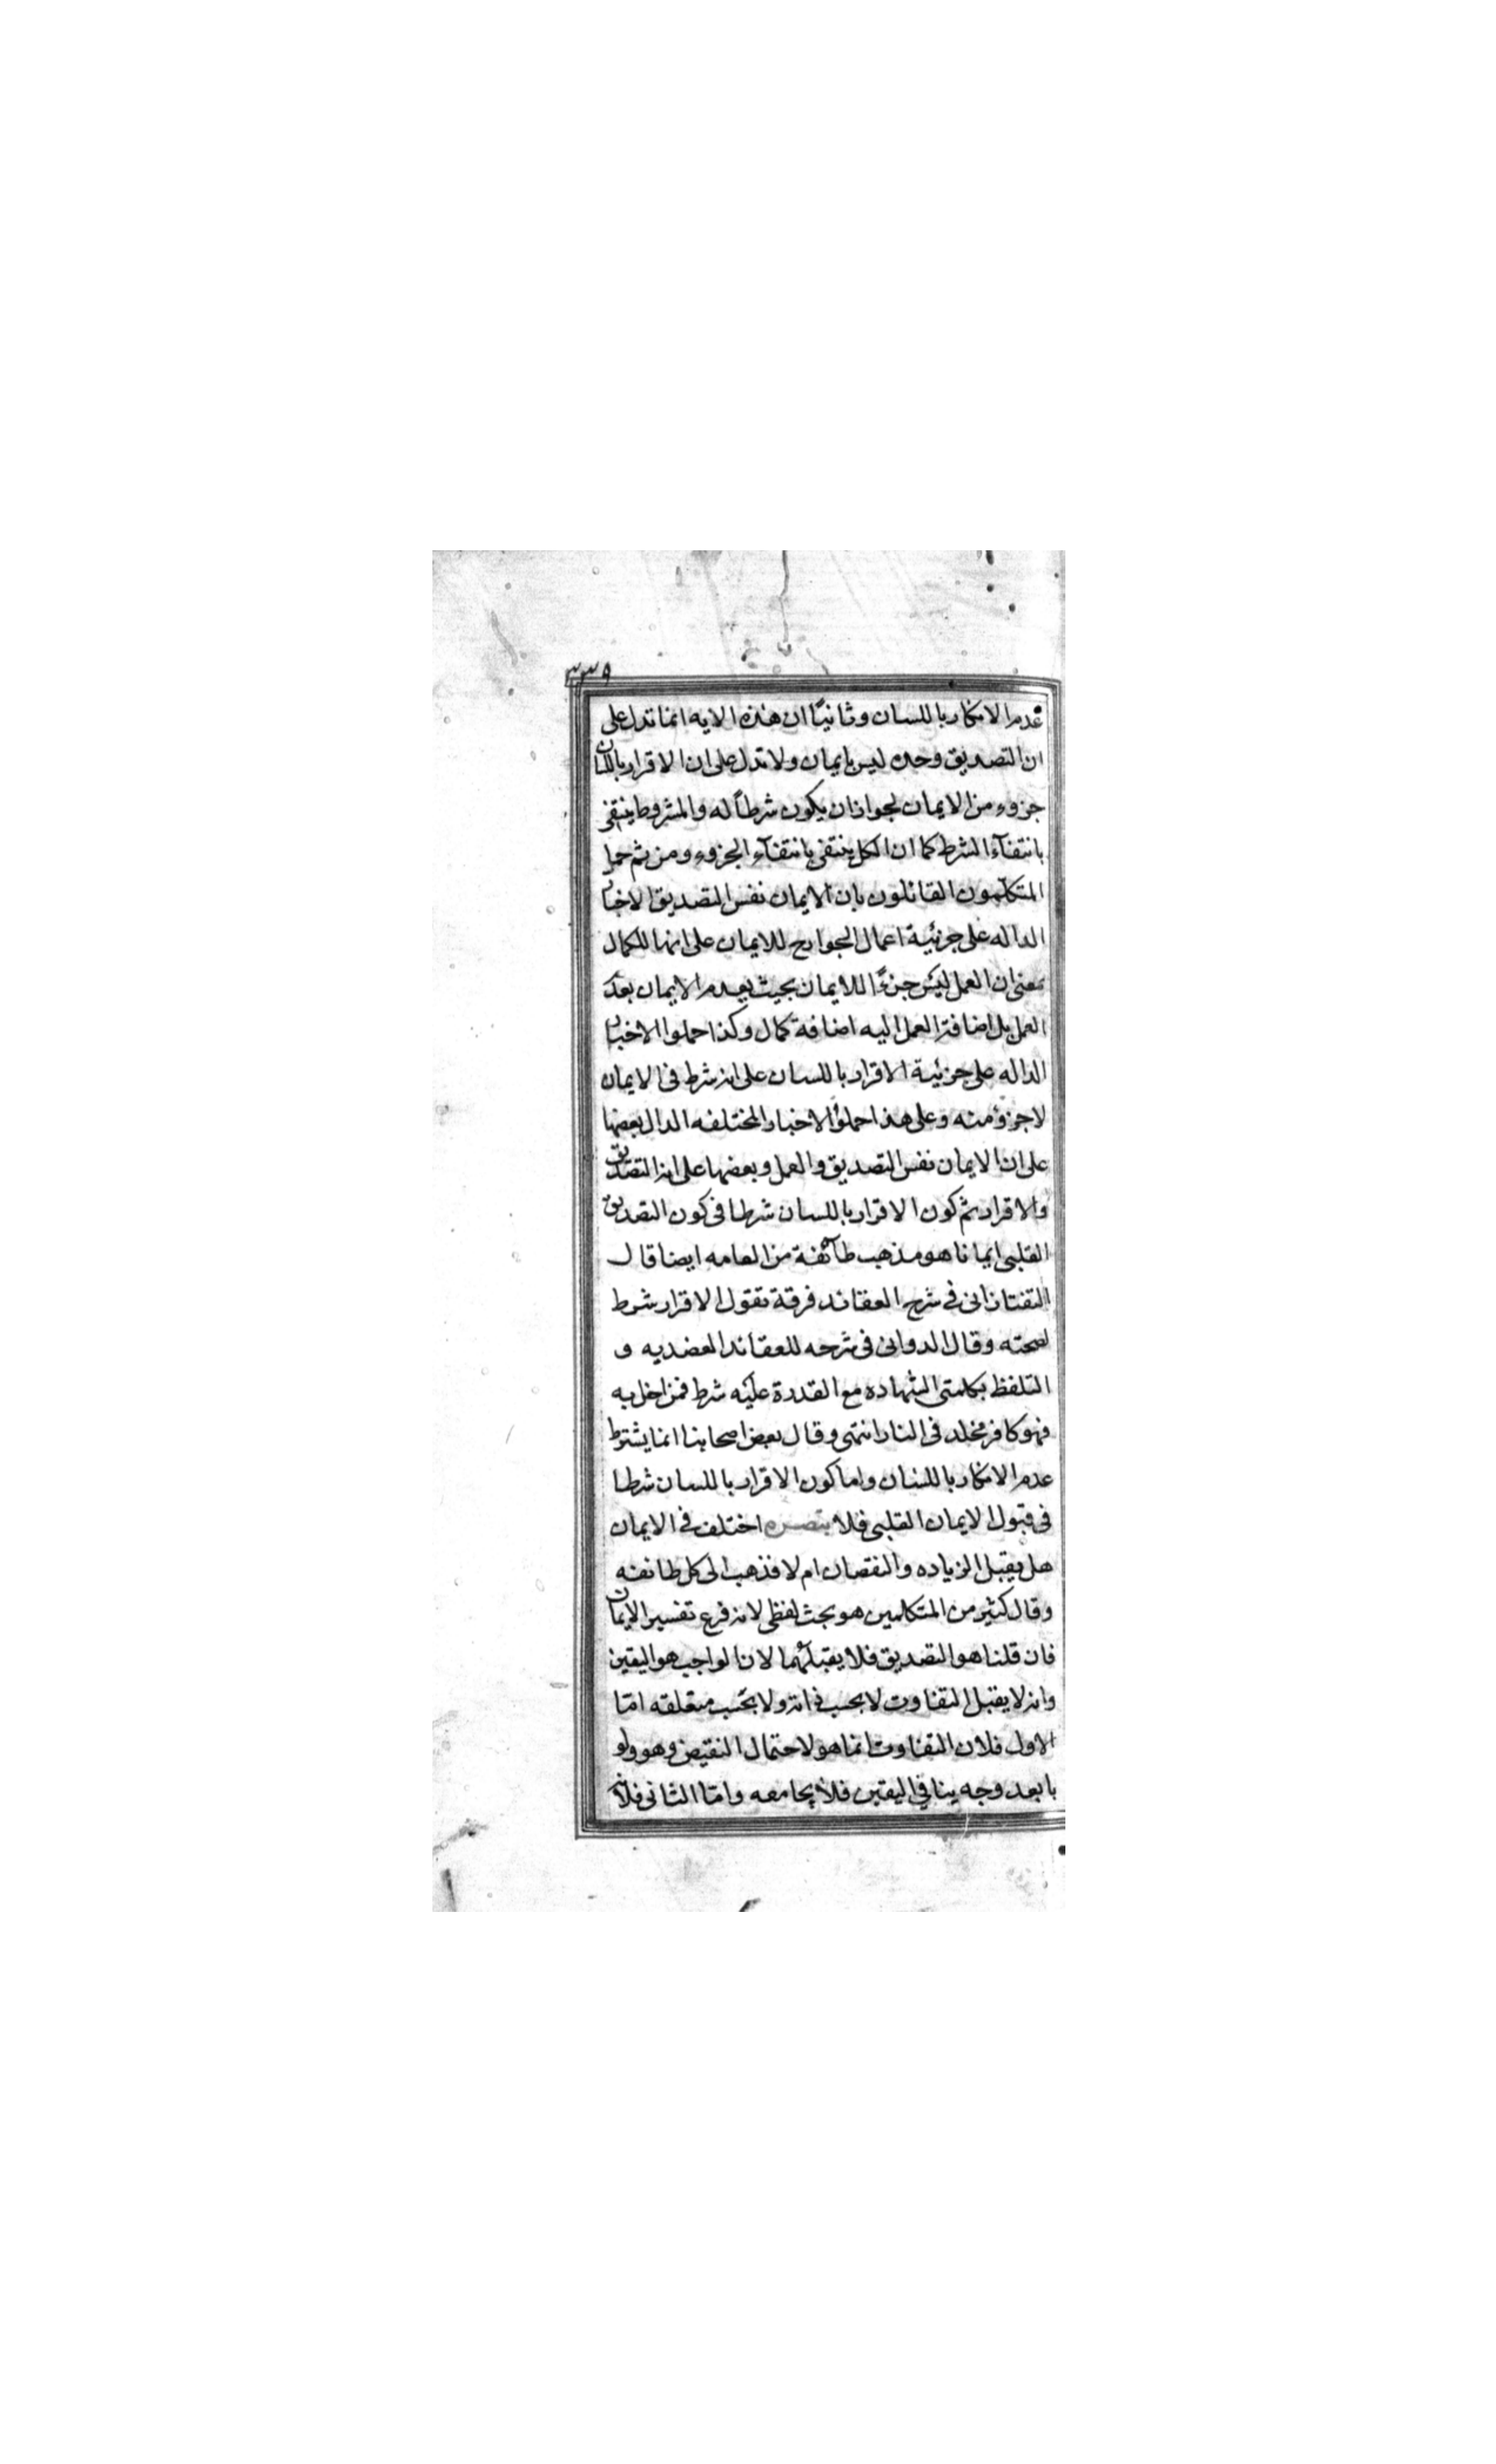 ٣٣٩
عدم الانكار باللسان وثانيًا ان هذه الايه انما تدل على
ان التصديق وحده ليس بايمان ولا تدل على ان الاقرار باللسان
جزوء من الايمان لجواز ان يكون شرطاً له والمشروط ينتفى
بانتفآء الشرط كما ان الكل ينتفى بانتفآء الجزوء ومن ثم حمل
المتكلمون القائلون بان الايمان نفس التصديق الاخبار
الداله على جزئية اعمال الجوارح للايمان على انها للكمال
بمعنى ان العمل ليس جزءًا للايمان بحيث يعدم الايمان بعدم
العمل بل اضافة العمل اليه اضافة كمال وكذا حملوا الاخبار
الداله على جزئية الاقرار باللسان على انه شرط فى الايمان
لا جزؤ منه وعلى هذا حملوا الاخبار المختلفه الدال بعضها
على ان الايمان نفس التصديق والعمل وبعضها على انه التصديق
والاقرار ثم كون الاقرار باللسان شرطا فى كون التصديق
القلبى ايمانا هو مذهب طآئفة من العامه ايضا قال
التفتازانى فى شرح العقائد فرقة تقول الاقرار شرط
لصحته وقال الدوانى فى شرحه للعقائد العضديه و
التلفظ بكلمتى الشهاده مع القدرة عليه شرط فمن اخل به
فهو كافر مخلد فى النار انتهى وقال بعض اصحابنا انما يشترط
عدم الانكار باللسان واما كون الاقرار باللسان شرطا
فى قبول الايمان القلبى فلا تبصره اختلف فى الايمان
هل يقبل الزياده والنقصان ام لا فذهب الى كل طائفه
وقال كثير من المتكلمين هو بحث لفظى لانه فرع تفسير الايمان
فان قلنا هو التصديق فلا يقبلهما لان الواجب هو اليقين
وانه لا يقبل التفاوت لا بحسب ذاته ولا بحسب متعلقه امّا
الاول فلان التفاوت انما هو لاحتمال النقيض وهو ولو
بابعد وجه ينافى اليقين فلا يجامعه وامّا الثانى فلانه